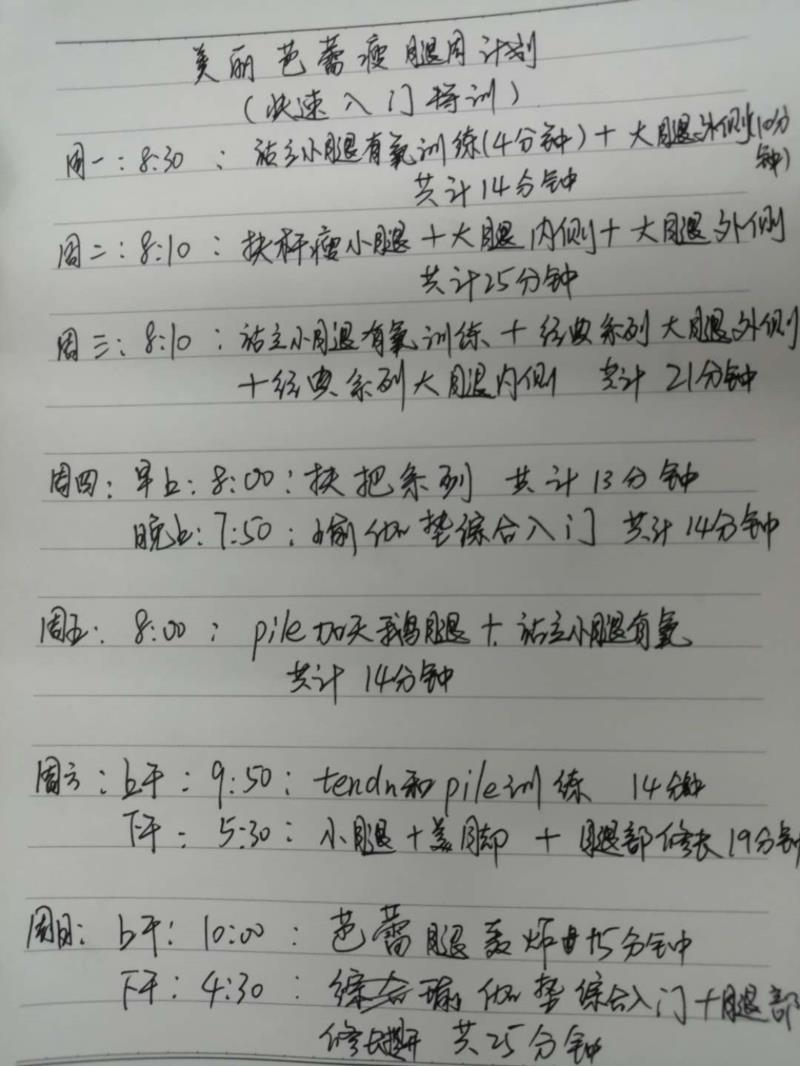 美丽芭蕾瘦腿周计划
(快速入门特训)
周一:8:30 : 站立小腿有氧训练(4分钟)+大腿外侧(10分
钟)
共计14分钟
周二:8:10:扶杆瘦小腿+大腿内侧+大腿外侧
共计25分钟
周三:8:10:站立小腿有氧训练+经典系列大腿外侧
+经典系列大腿内侧 共计 21分钟
周四:早上:8:00:扶把系列 共计13分钟
晚上:7:50:瑜伽垫综合入门 共计14分钟
周五:8:00: pile加天鹅腿+站立小腿有氧
共计 14分钟
周六:上午:9:50:tendn和pile训练 14分钟
下午:5:30:小腿+美脚+腿部修长19分钟
周日:上午:10:00:芭蕾腿轰炸 15分钟
下午:4:30: 瑜伽垫综合入门+腿部
修长 共25分钟